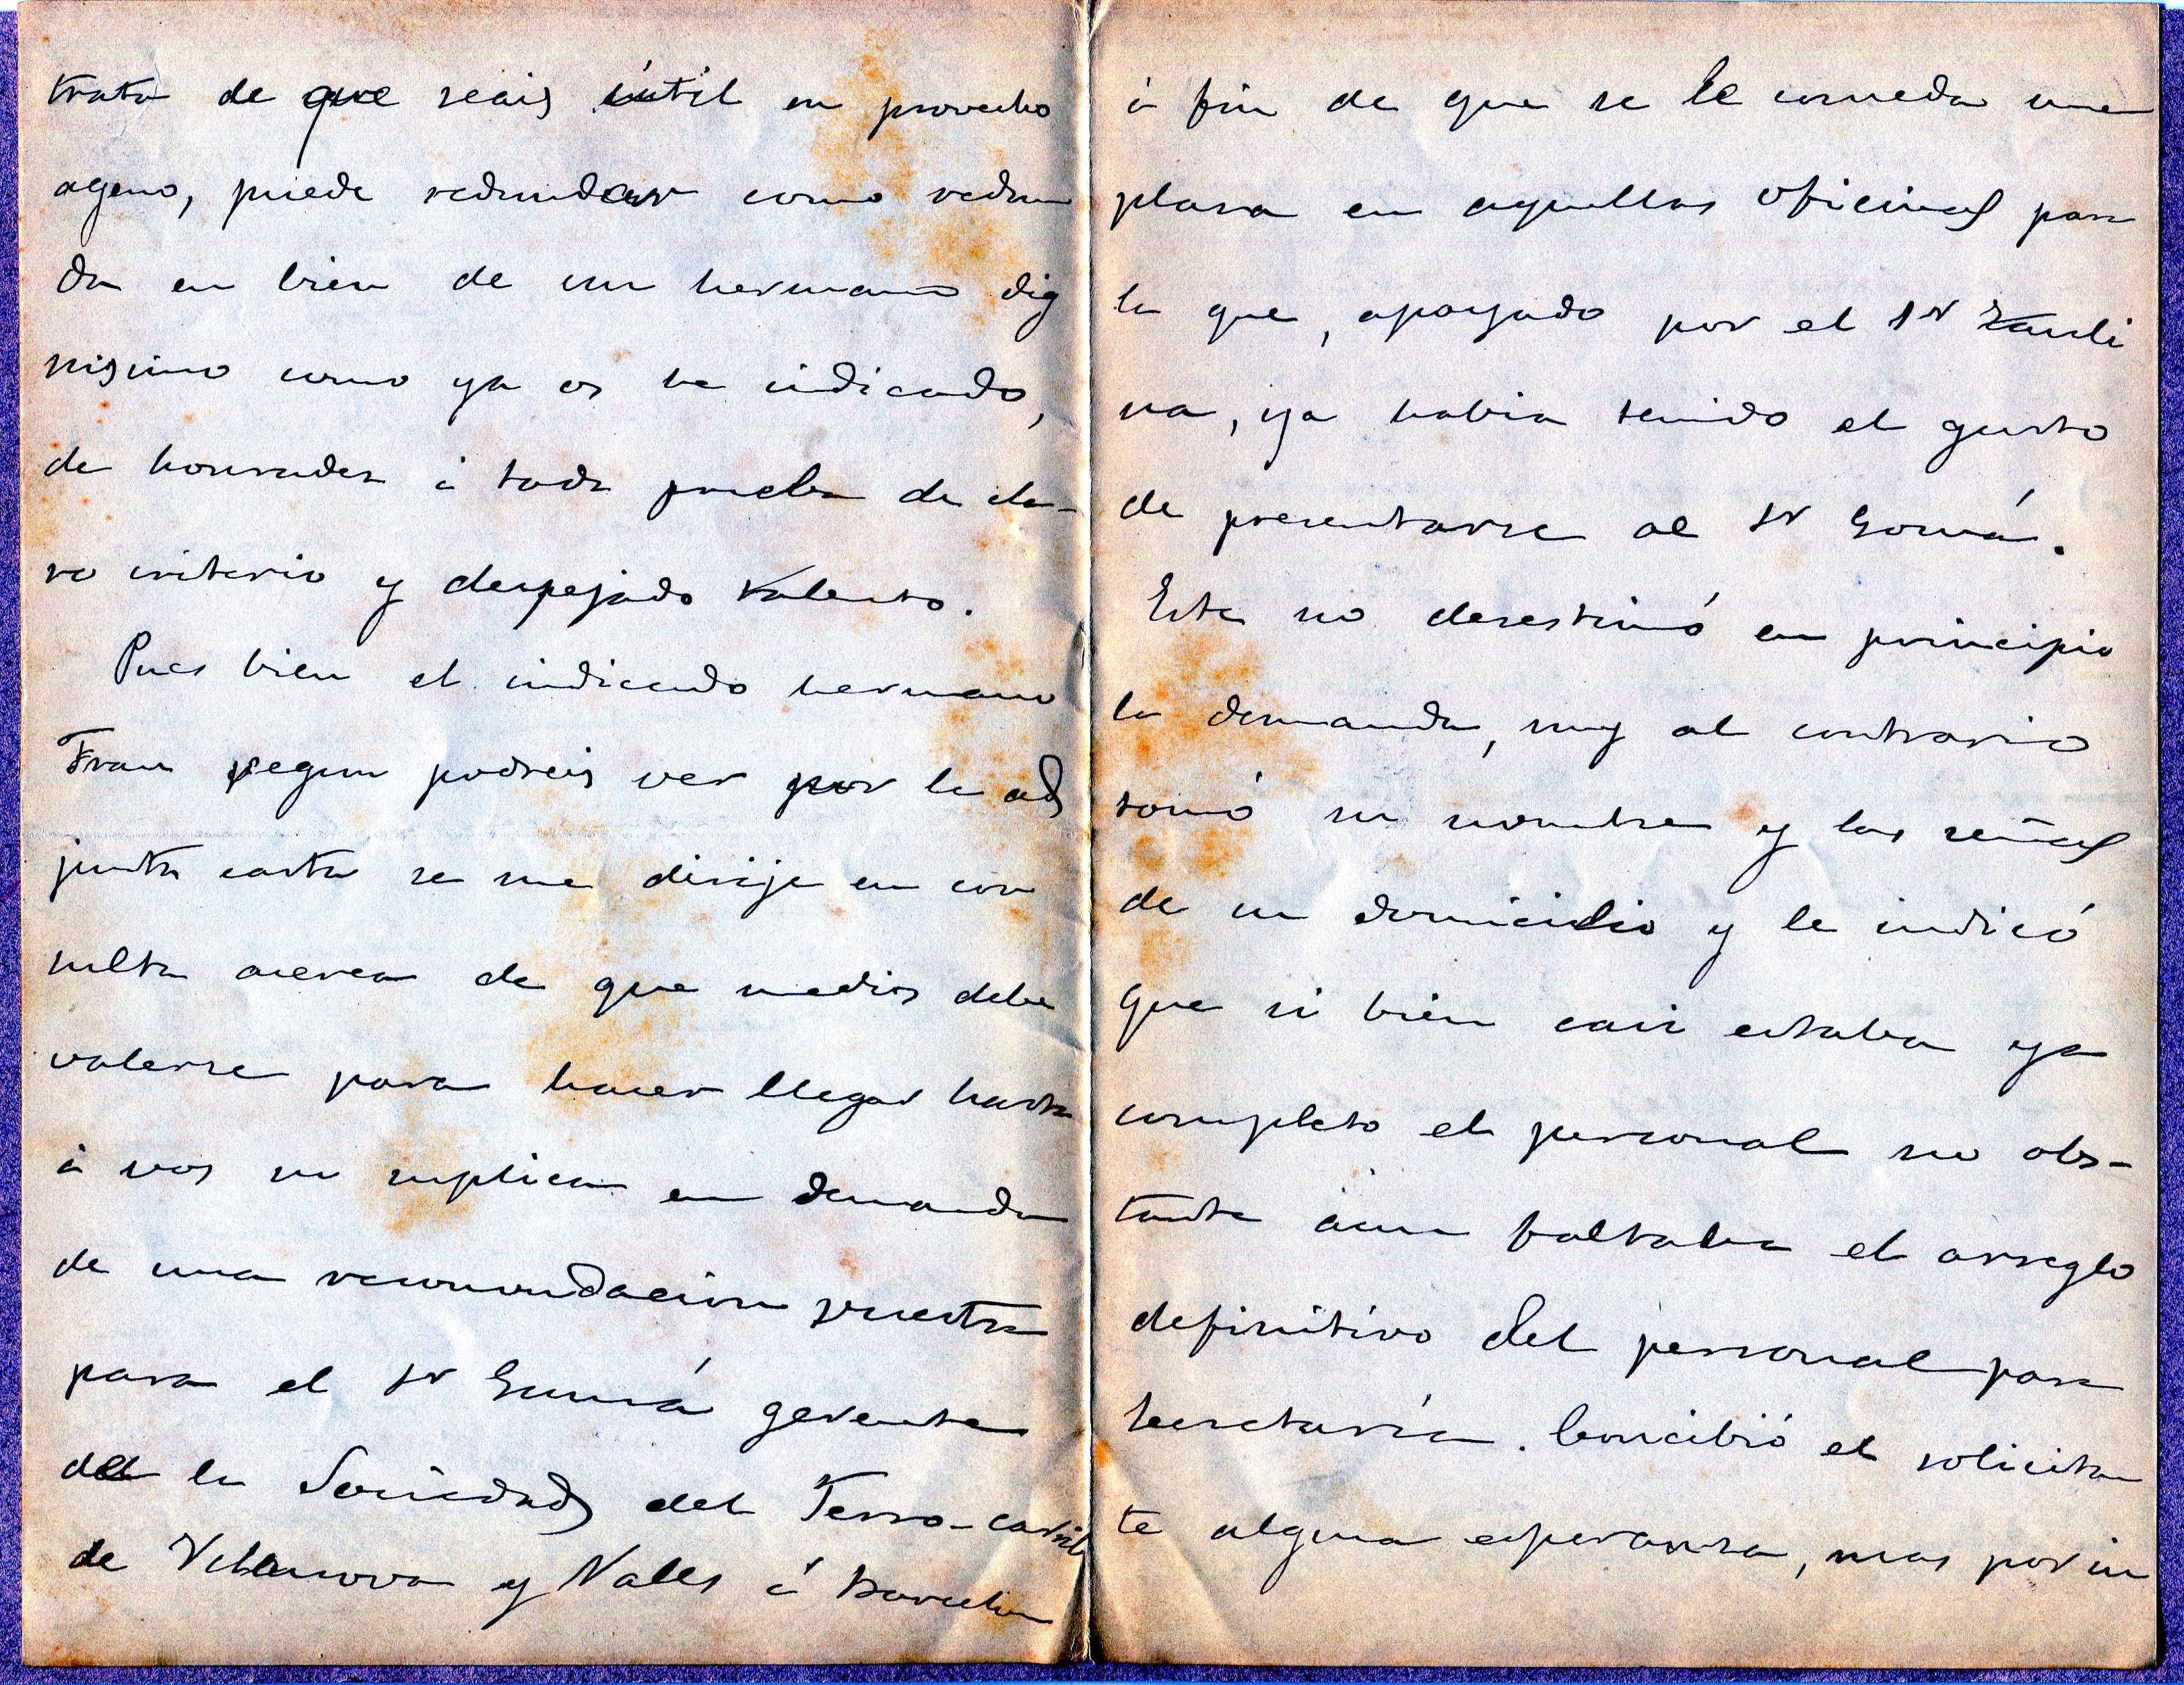 trata de que seais útil en provecho
ageno, puede redundar como redun
da en bien de un hermano dig
nisimo como ya os he indicado,
de honradez á toda prueba de cla-
ro criterio y despejado talento.
Pues bien el indicado hermano
Fran segun podreis ver por la ad
junta carta se me dirije en con
sulta acerca de que medios debe
valerse para hacer llegar hasta
á vos su suplica en demanda
de una recomendacion vuestra
para el Sr Gumá gerente
de la Sociedad del Ferro-carril
de Vilanova y Valls á Barcelon
á fin de que se le conceda una
plaza en aquellas oficinas para
la que, apoyado por el Sr
na, ya habia tenido el gusto
de presentarse al Sr Gomá.
Este no desestimó en principio
la demanda, muy al contrario
tomó su nombre y las señas
de su domicilio y le indicó
que si bien casi estaba ya
completo el personal no obs-
tante aun faltaba el arreglo
definitivo del personal para
Secretaría. Concibió el solicitan
te alguna esperanza, mas por in